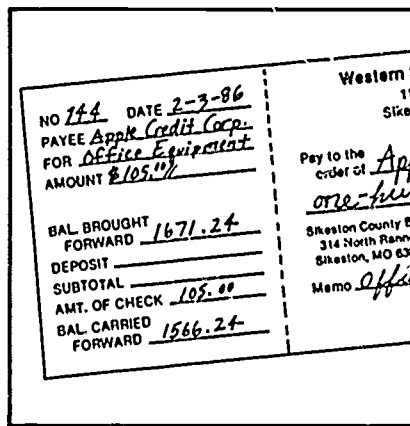 NO 744 DATE 2-3-86
PAYEE Apple Credit Corp.
FOR Office Equipment
AMOUNT $105.00/
BAL. BROUGHT
FORWARD 1671.24
DEPOSIT
SUBTOTAL
AMT. OF CHECK 105.00
BAL. CARRIED
FORWARD 1566.24
Western
Sike
Pay to the
order of App
one-hu
Sikeston County B
314 North Rann
Sikeston, MO 63
Memo Offi